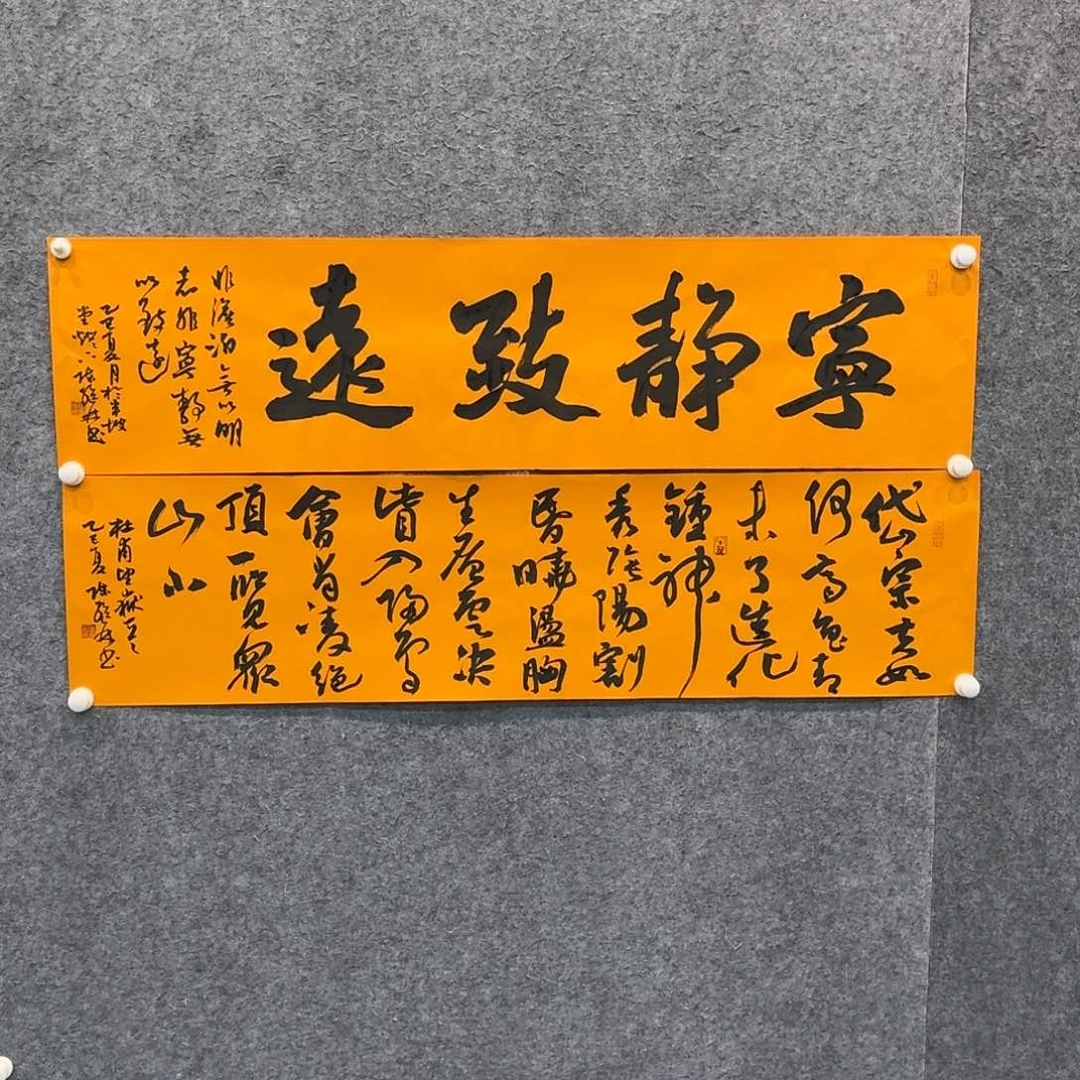 寧静致遠
非澹泊無以明
志非寧静無
以致遠
乙巳夏月於半坡
岱宗夫如
何齊魯青
未了造化
鍾神
秀陰陽割
昏曉盪胸
生層雲決
眥入歸鳥
會當凌絕
頂一覽眾
山小
杜甫望嶽
乙巳夏